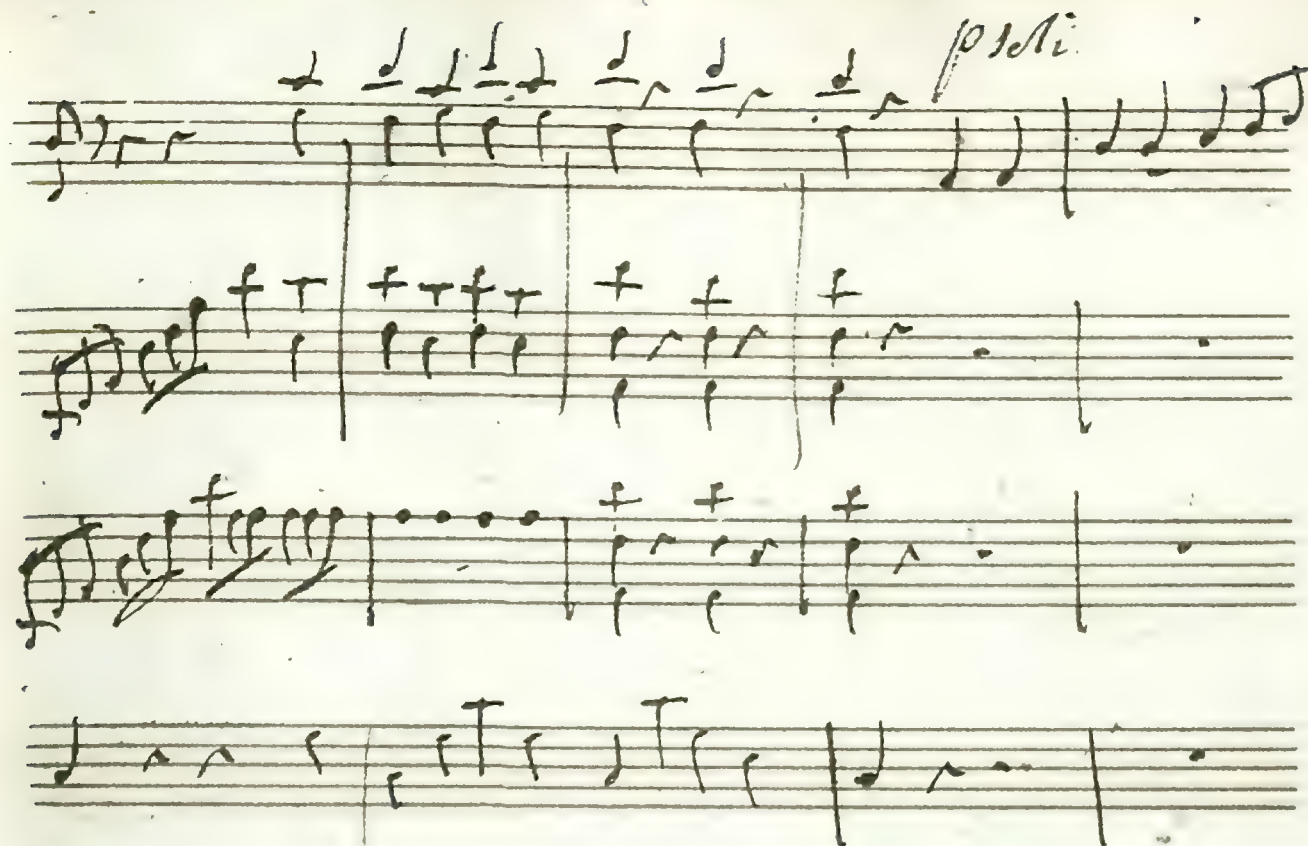 p soli